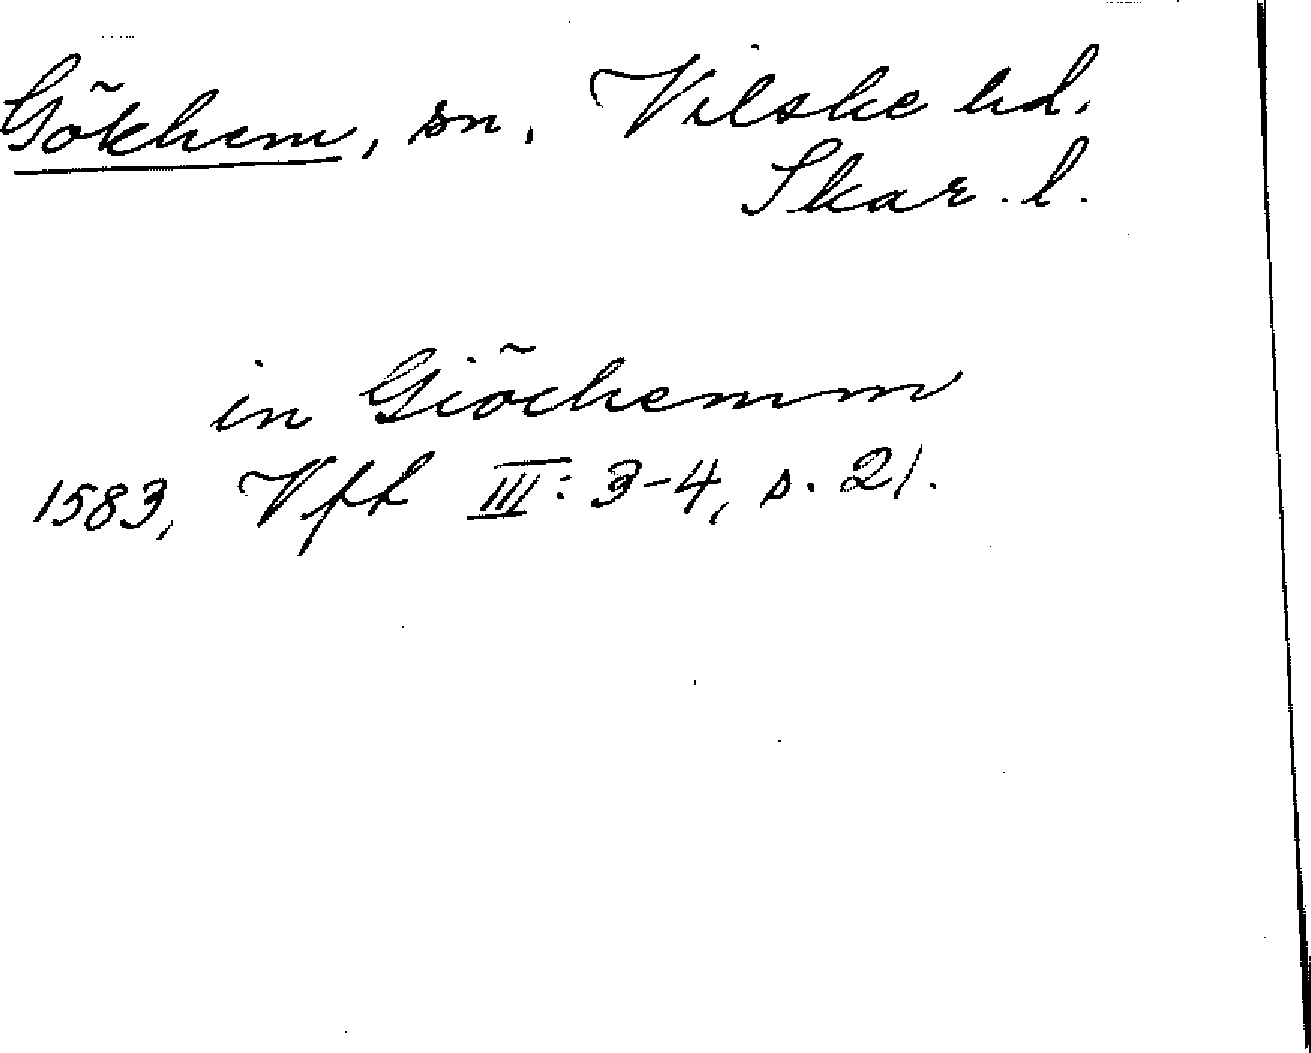 Gökhem, sn, Vilske hd.
Skar. l.
in Giöchemm
1583, Vfh III: 3-4, s. 21.